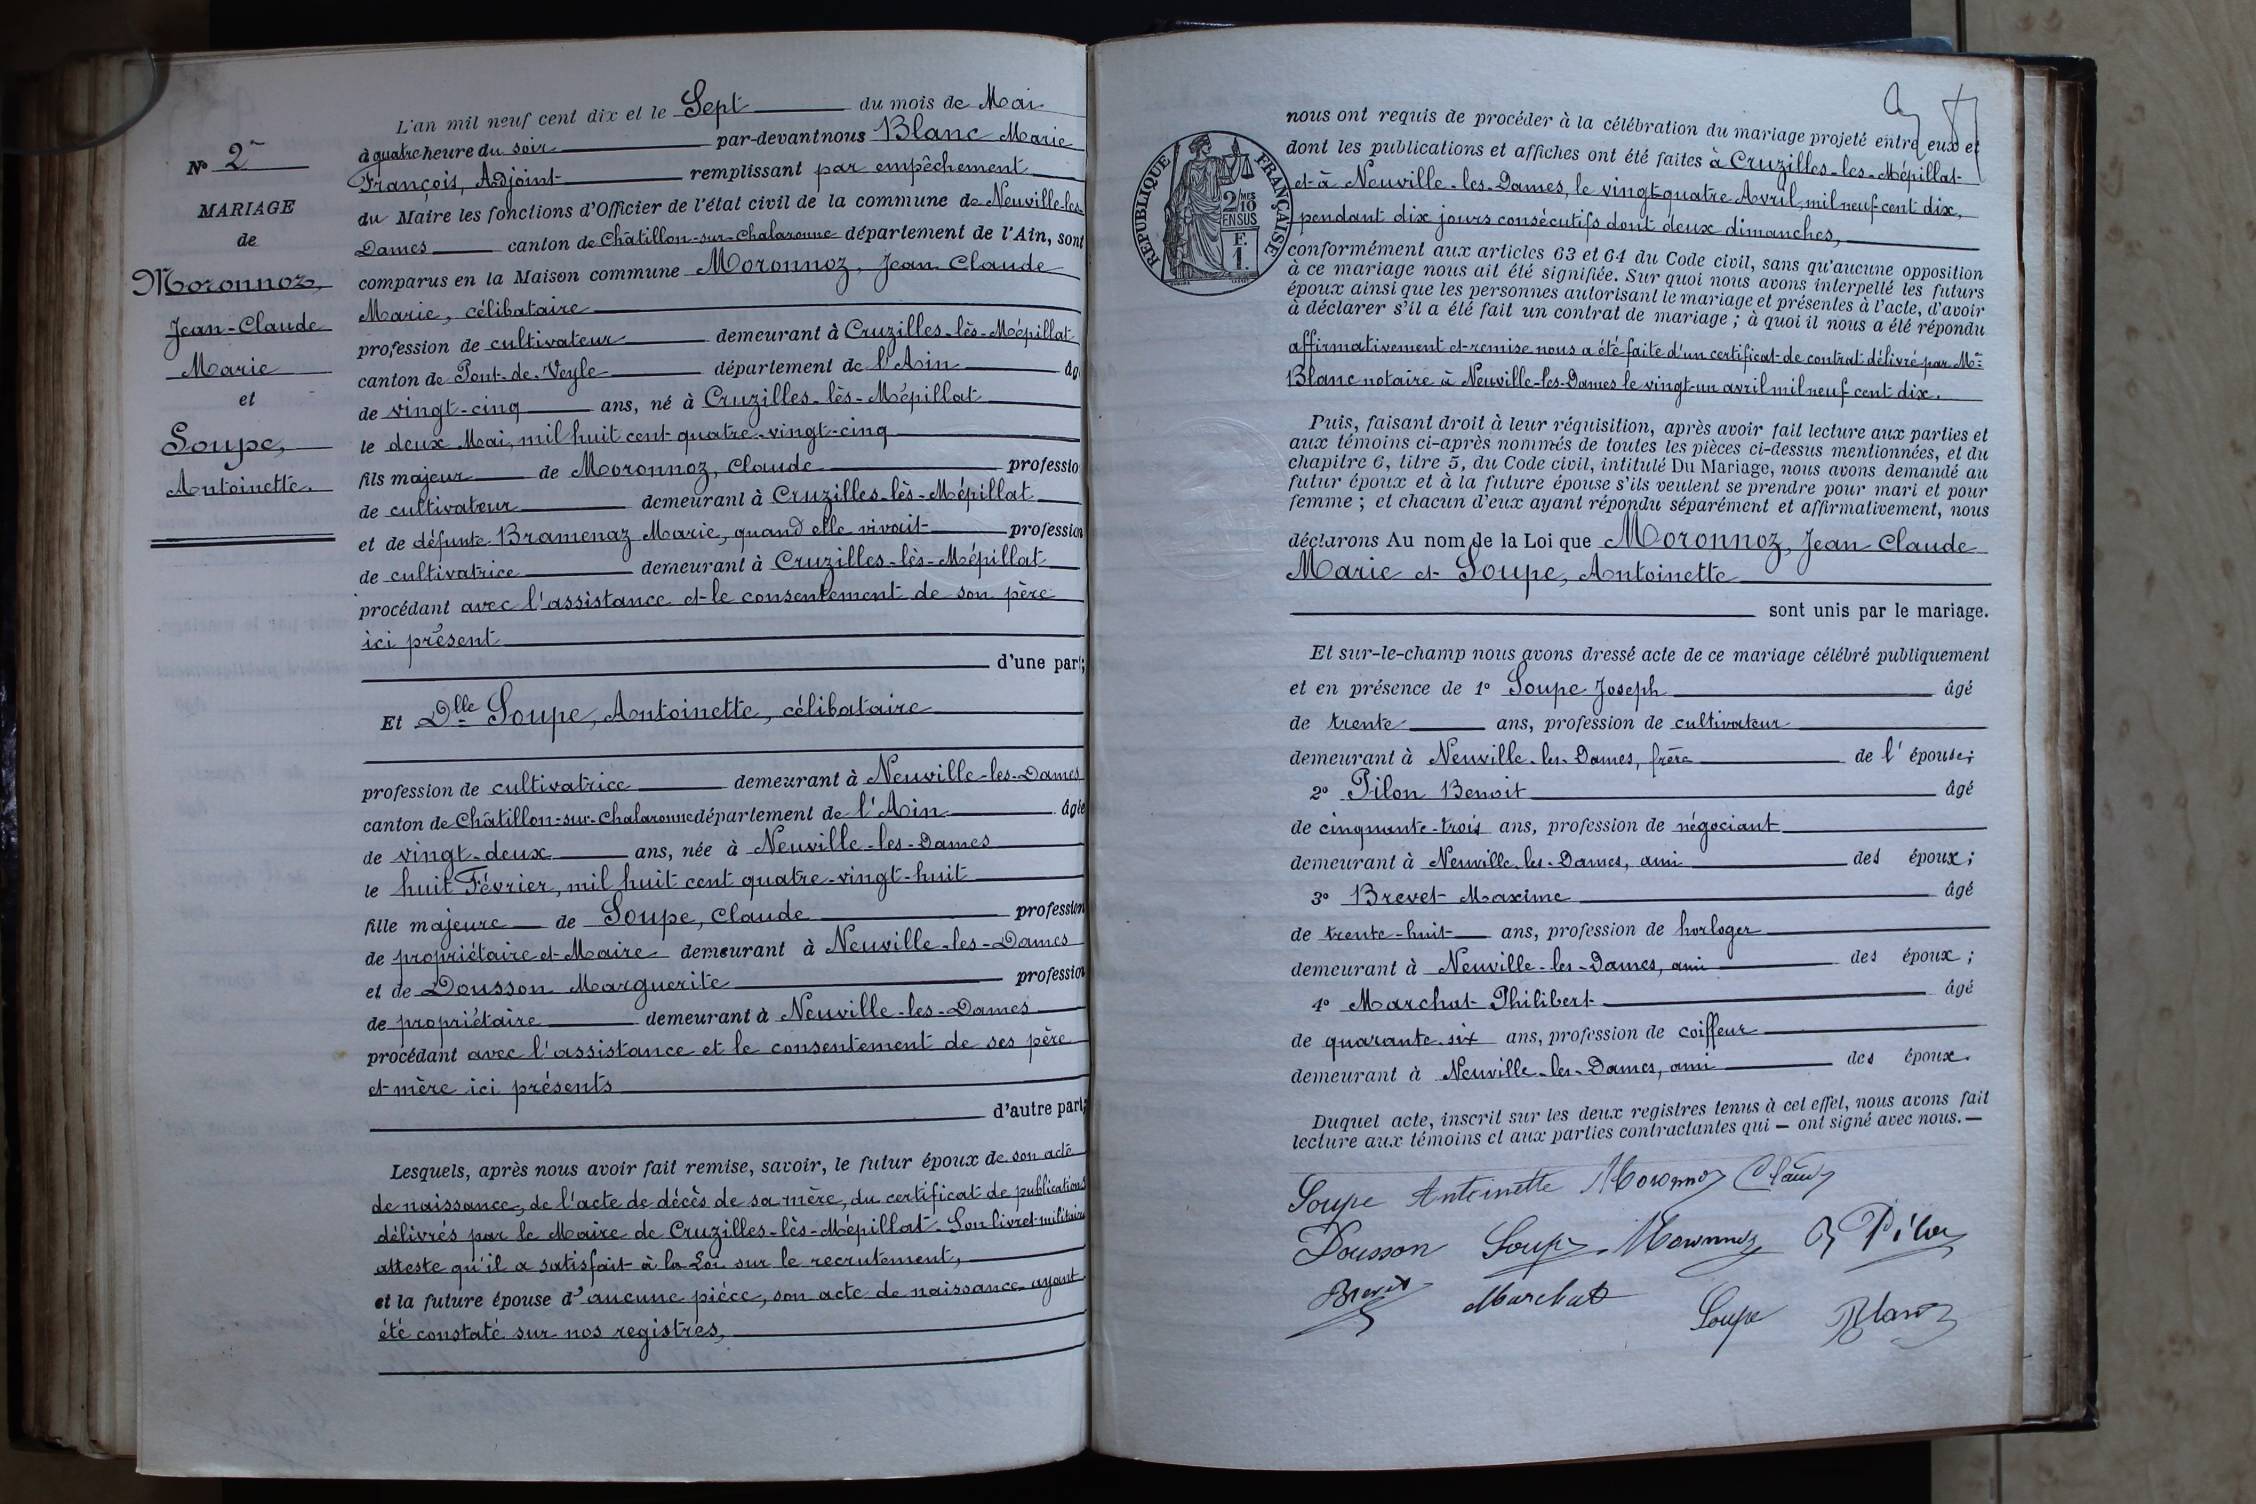 N° 2
MARIAGE
de
Moronnoz,
Jean-Claude
Marie
et
Soupe,
Antoinette.
L'an mil neuf cent dix et le Sept du mois de Mai
à quatre heure du soir par-devant nous Blanc Marie
François, Adjoint remplissant par empêchement
du Maire les fonctions d'Officier de l'état civil de la commune de Neuville-les-
Dames canton de Châtillon-sur-Chalaronne département de l'Ain, sont
comparus en la Maison commune Moronnoz, Jean Claude
Marie, célibataire
profession de cultivateur demeurant à Cruzilles-lès-Mépillat
canton de Pont-de-Veyle département de l'Ain âg
de vingt-cinq ans, né à Cruzilles-lès-Mépillat
le deux Mai, mil huit cent quatre-vingt-cinq
fils majeur de Moronnoz, Claude professio
de cultivateur demeurant à Cruzilles-lès-Mépillat
et de défunte Bramenaz Marie, quand elle vivait profession
de cultivatrice demeurant à Cruzilles-lès-Mépillat
procédant avec l'assistance et le consentement de son père
ici présent
d'une part;
Et Dlle Soupe, Antoinette, célibataire
profession de cultivatrice demeurant à Neuville-les-Dames
canton de Châtillon-sur-Chalaronne département de l'Ain âgée
de vingt-deux ans, née à Neuville-les-Dames
le huit Février, mil huit cent quatre-vingt-huit
fille majeure de Soupe, Claude profession
de propriétaire et Maire demeurant à Neuville-les-Dames
et de Dousson Marguerite profession
de propriétaire demeurant à Neuville-les-Dames
procédant avec l'assistance et le consentement de ses père
et mère ici présents
d'autre part;
Lesquels, après nous avoir fait remise, savoir, le futur époux de son acte
de naissance, de l'acte de décès de sa mère, du certificat de publications
délivrés par le Maire de Cruzilles-lès-Mépillat. Son livret militaire
atteste qu'il a satisfait à la Loi sur le recrutement,
et la future épouse d'aucune pièce, son acte de naissance ayant
été constaté sur nos registres,
RÉPUBLIQUE FRANÇAISE
2/MES
10
EN SUS
F.
1.
nous ont requis de procéder à la célébration du mariage projeté entre eux et
dont les publications et affiches ont été faites à Cruzilles-les-Mépillat
et à Neuville-les-Dames, le vingt-quatre Avril, mil neuf cent dix,
pendant dix jours consécutifs dont deux dimanches,
conformément aux articles 63 et 64 du Code civil, sans qu'aucune opposition
à ce mariage nous ait été signifiée. Sur quoi nous avons interpellé les futurs
époux ainsi que les personnes autorisant le mariage et présentes à l'acte, d'avoir
à déclarer s'il a été fait un contrat de mariage; à quoi il nous a été répondu
affirmativement et remise nous a été faite d'un certificat de contrat délivré par Me
Blanc notaire à Neuville-les-Dames le vingt-un avril mil neuf cent dix.
Puis, faisant droit à leur réquisition, après avoir fait lecture aux parties et
aux témoins ci-après nommés de toutes les pièces ci-dessus mentionnées, et du
chapitre 6, titre 5, du Code civil, intitulé Du Mariage, nous avons demandé au
futur époux et à la future épouse s'ils veulent se prendre pour mari et pour
femme; et chacun d'eux ayant répondu séparément et affirmativement, nous
déclarons Au nom de la Loi que Moronnoz, Jean Claude
Marie et Soupe, Antoinette
sont unis par le mariage.
Et sur-le-champ nous avons dressé acte de ce mariage célébré publiquement
et en présence de 1° Soupe Joseph âgé
de trente ans, profession de cultivateur
demeurant à Neuville-les-Dames, frère de l'épouse;
2° Pilon Benoit âgé
de cinquante-trois ans, profession de négociant
demeurant à Neuville-les-Dames, ami des époux;
3° Brevet Maxime âgé
de trente-huit ans, profession de horloger
demeurant à Neuville-les-Dames, ami des époux;
4° Marchat Philibert âgé
de quarante six ans, profession de coiffeur
demeurant à Neuville-les-Dames, ami des époux.
Duquel acte, inscrit sur les deux registres tenus à cet effet, nous avons fait
lecture aux témoins et aux parties contractantes qui — ont signé avec nous. —
Soupe Antoinette Moronnoz Claude
Dousson Soupe Moronnoz B Pilon
Brevet Marchat Soupe Blanc